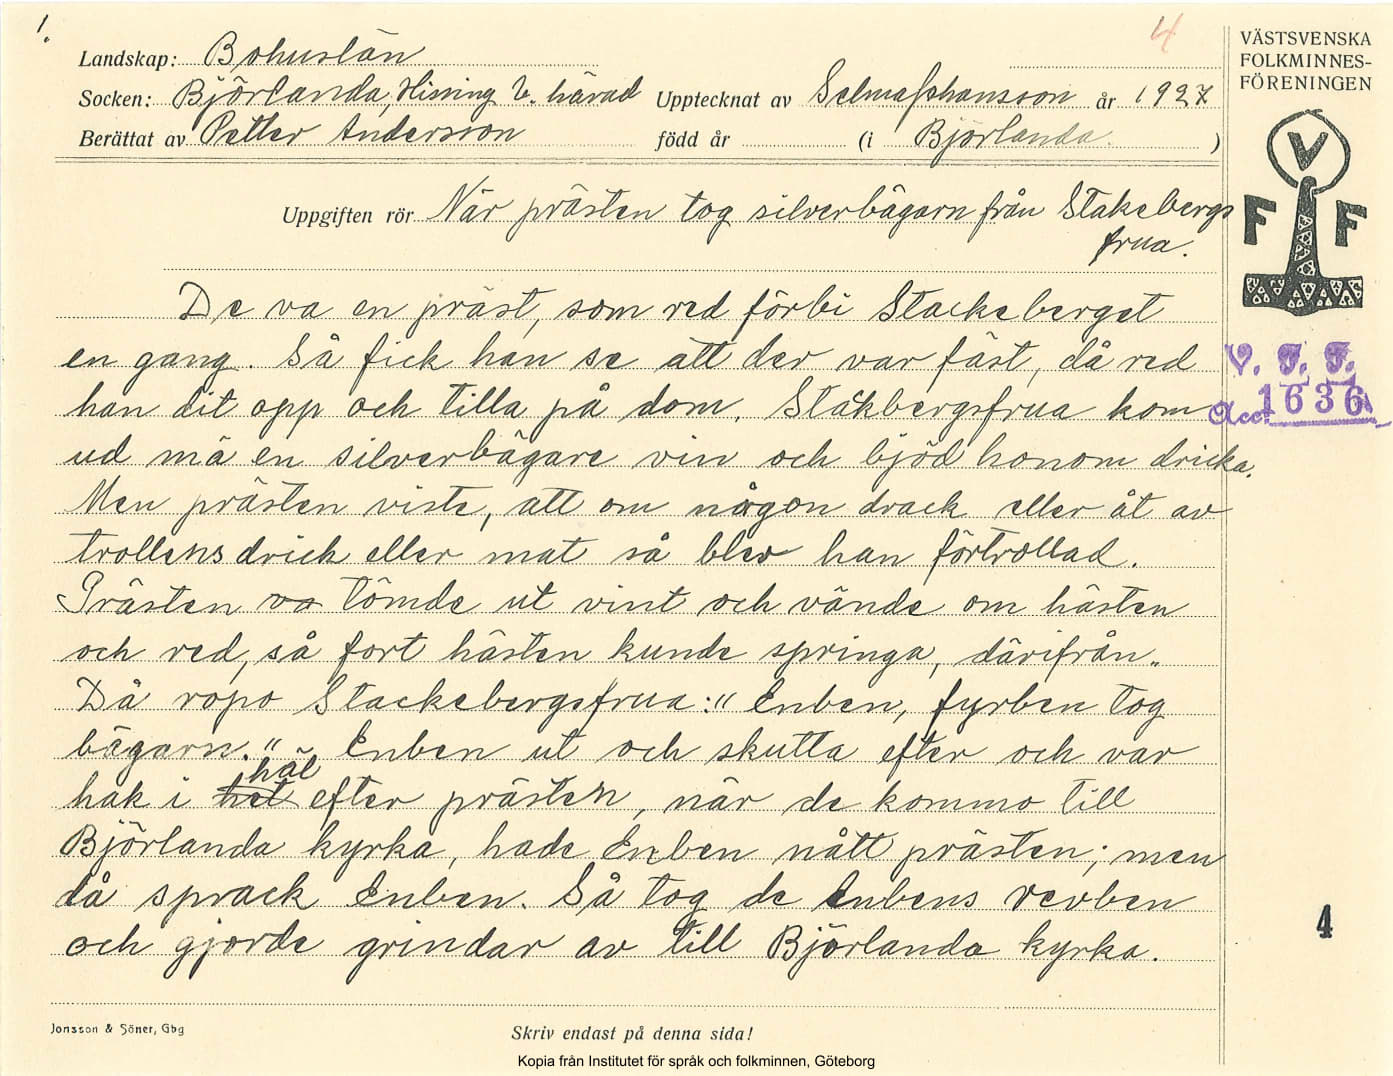 1.
4
Landskap: Bohuslän
Socken: Björlanda, Hising V. härad Upptecknat av Selma Johansson år 1927
Berättat av Petter Andersson född år (i Björlanda. )
Uppgiften rör När prästen tog silverbägarn från Stakebergs
frua.
De va en präst, som red förbi Stackeberget
en gang. Så fick han se att der var fäst, då red
han dit opp och tilla på dom. Stakbergsfrua kom
ud mä en silverbägare vin och bjöd honom dricka.
Men prästen viste, att om någon drack eller åt av
trollens drick eller mat så blev han förtrollad.
Prästen va tömde ut vint och vände om hästen
och red, så fort hästen kunde springa, därifrån.
Då ropo Stackebergsfrua: "Enben, fyrben tog
bägarn." Enben ut och skutta efter och var
hak i häl efter prästen, när de kommo till
Björlanda kyrka, hade Enben nått prästen; men
då sprack Enben. Så tog de Enbens revben
och gjorde grindar av till Björlanda kyrka.
VÄSTSVENSKA
FOLKMINNES-
FÖRENINGEN
V
F F
V. F. F.
Acc. 1636
4
Jonsson & Söner, Gbg
Skriv endast på denna sida!
Kopia från Institutet för språk och folkminnen, Göteborg